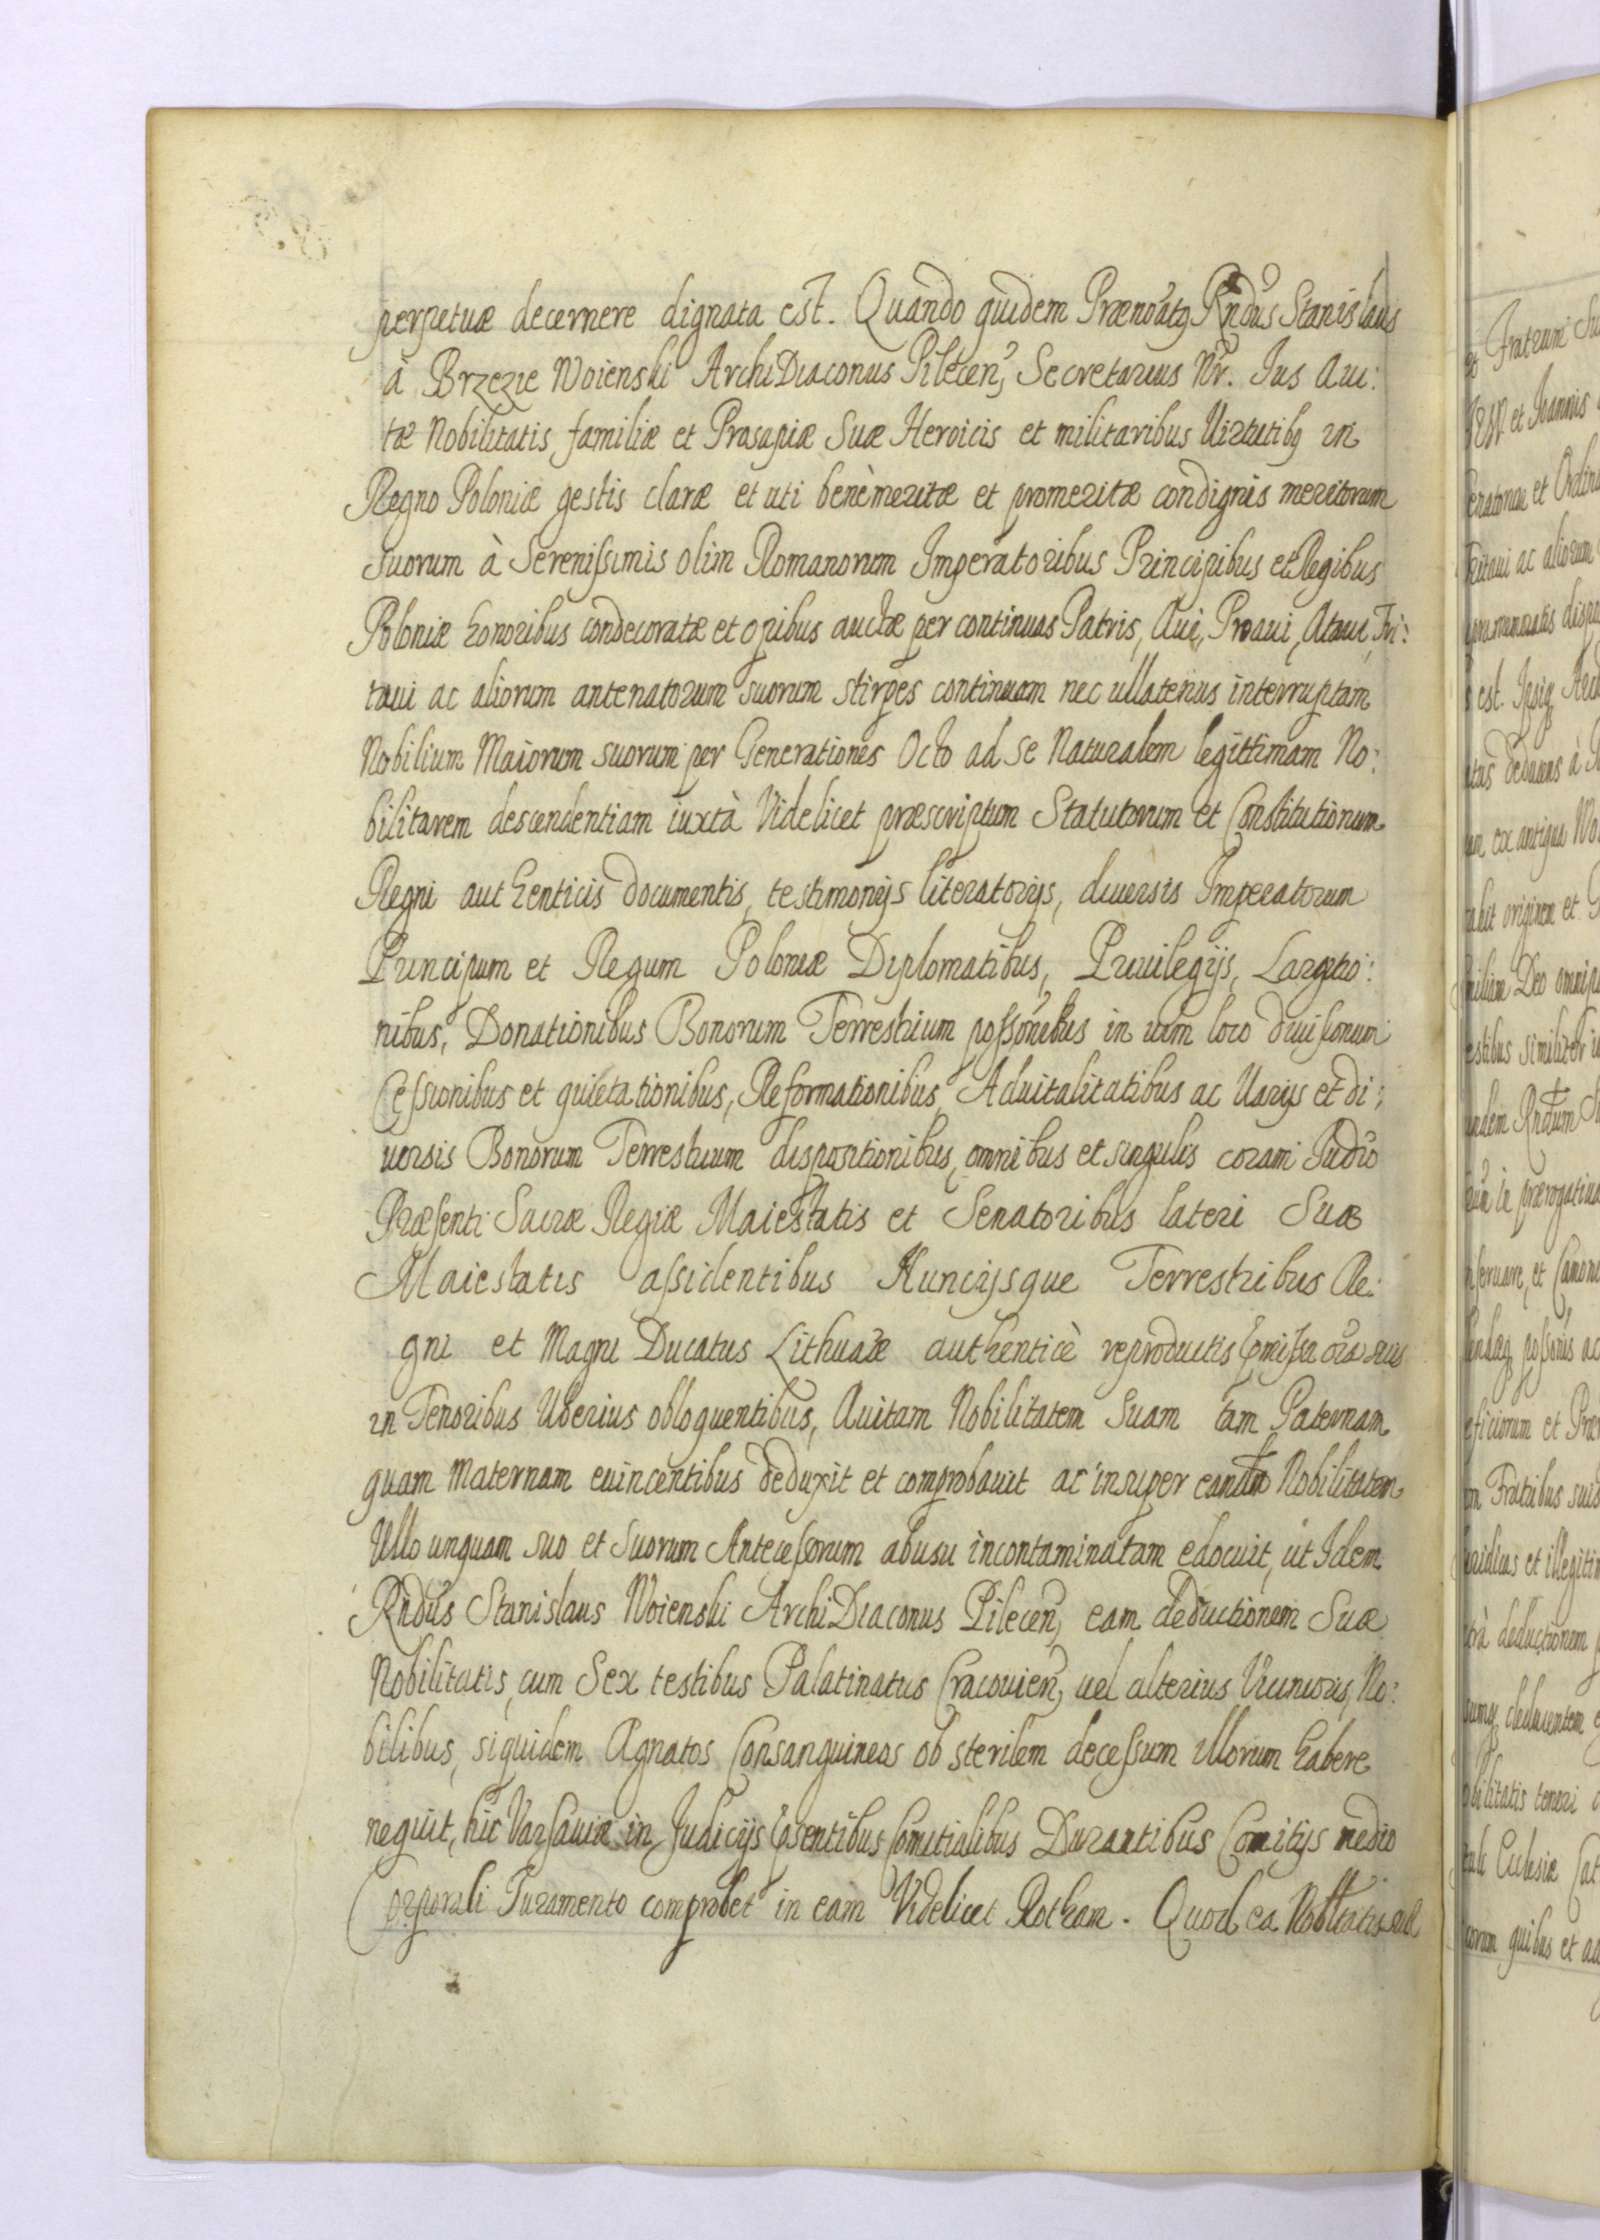 perpetuæ decernere dignata est. Quando quidem Prænoatq Rndus Stanislaus
à Brzezie Woienski ArchiDiaconus Pilecen, Secretarius Nr. Ius Aui:
tæ Nobilitatis familiæ et Prosapiæ Suæ Heroicis et militaribus Uirtutibq in
Regno Poloniæ gestis claræ et uti benèmeritæ et promeritæ condignis meritorum
suorum à Serenissimis olim Romanorum Imperatoribus Principibus et Regibus
Poloniæ honoribus condecoratæ et opibus auctæ per continuas Patris, Aui, Proaui, Ataui, Tri:
taui ac aliorum antenatorum suorum stirpes continuam nec ullatenus interruptam
Nobilium Maiorum suorum per Generationes Octo ad se Naturalem legittimam No:
bilitarem descendentiam iuxtà Videlicet præscriptum Statutorum et Constitutionum
Regni authenticis documentis, testimonijs literatorijs, diuersis Imperatorum
Principum et Regum Poloniæ Diplomatibus, Priuilegijs, Largitio:
nibus, Donationibus Bonorum Terrestrium possonibus in uim loco diuisionum
Cessionibus et quietationibus, Reformationibus, Aduitalitatibus ac Uarijs et di:
uersis Bonorum Terrestrium dispositionibus, omnibus et singulis coram Judio
Præsenti Sacræ Regiæ Maiestatis et Senatoribus lateri Suæ
Maiestatis assidentibus Nuncijsque Terrestribus Re:
gni et Magni Ducatus Lithuaæ authenticè reproductis
in Tenoribus Uberius obloquentibus, Auitam Nobilitatem Suam tam Paternam
quam Maternam euincentibus deduxit et comprobauit ac insuper eandem Nobilitatem
Ullo unquam suo et Suorum Antecessorum abusu incontaminatam edocuit, ut Idem
Rndus Stanislaus Woienski ArchiDiaconus Pilecen, eam deductionem Suæ
Nobilitatis, cum Sex testibus Palatinatus Cracouien, uel alterius Uicinioris, No:
bilibus, siquidem Agnatos Consanguineos ob sterilem decessum illorum habere
nequit, hic Varsauiæ in Judicijs psentibus Comitialibus Durantibus Comitijs medio
Corporali Iuramento comprobet in eam Videlicet Rotham. Quod ea Nobltatis